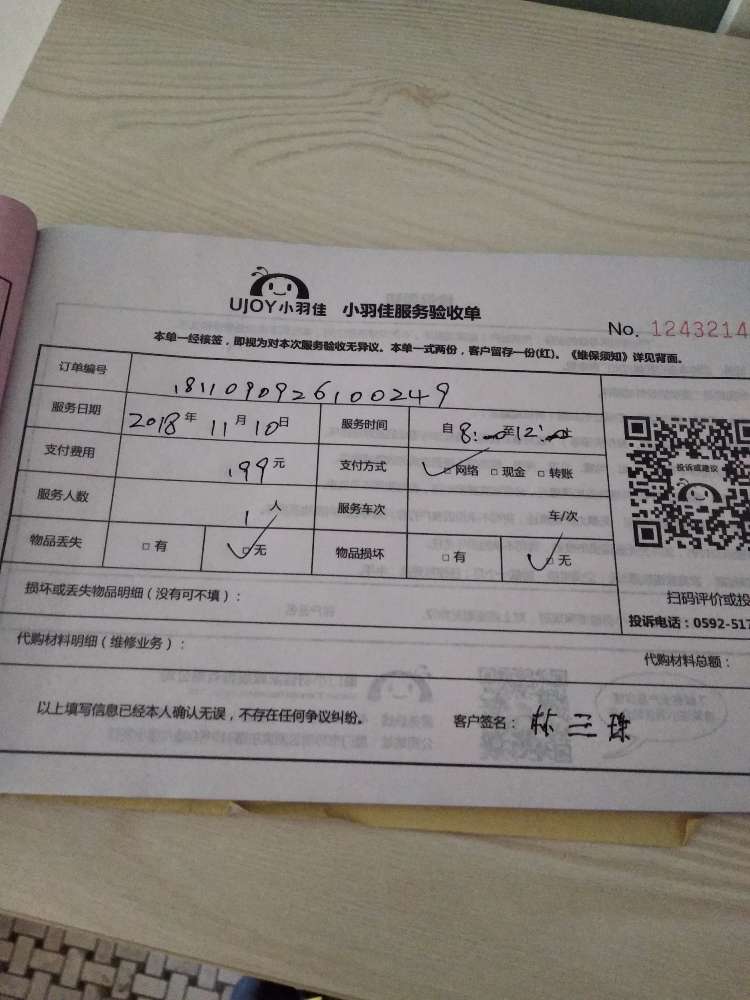 UJOY小羽佳 小羽佳服务验收单
No. 1243214
本单一经核签，即视为对本次服务验收无异议。本单一式两份，客户留存一份(红)。《维保须知》详见背面。
订单编号 1811090926100249
服务日期 2018年11月10日 服务时间 自8:00至12:00止
支付费用 199元 支付方式 □网络 □现金 □转账
投诉或建议
服务人数 1人 服务车次 车/次
物品丢失 □有 □无 物品损坏 □有 □无
损坏或丢失物品明细（没有可不填）：
扫码评价或投
投诉电话：0592-517
代购材料明细（维修业务）：
代购材料总额：
以上填写信息已经本人确认无误，不存在任何争议纠纷。 客户签名：林三珠